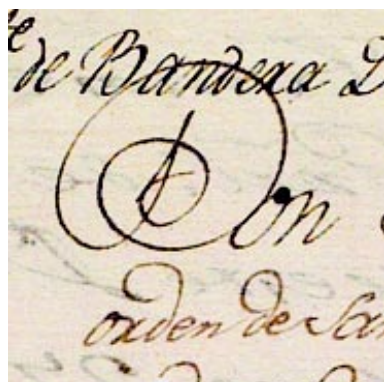 de Bandera D
Don
orden de San